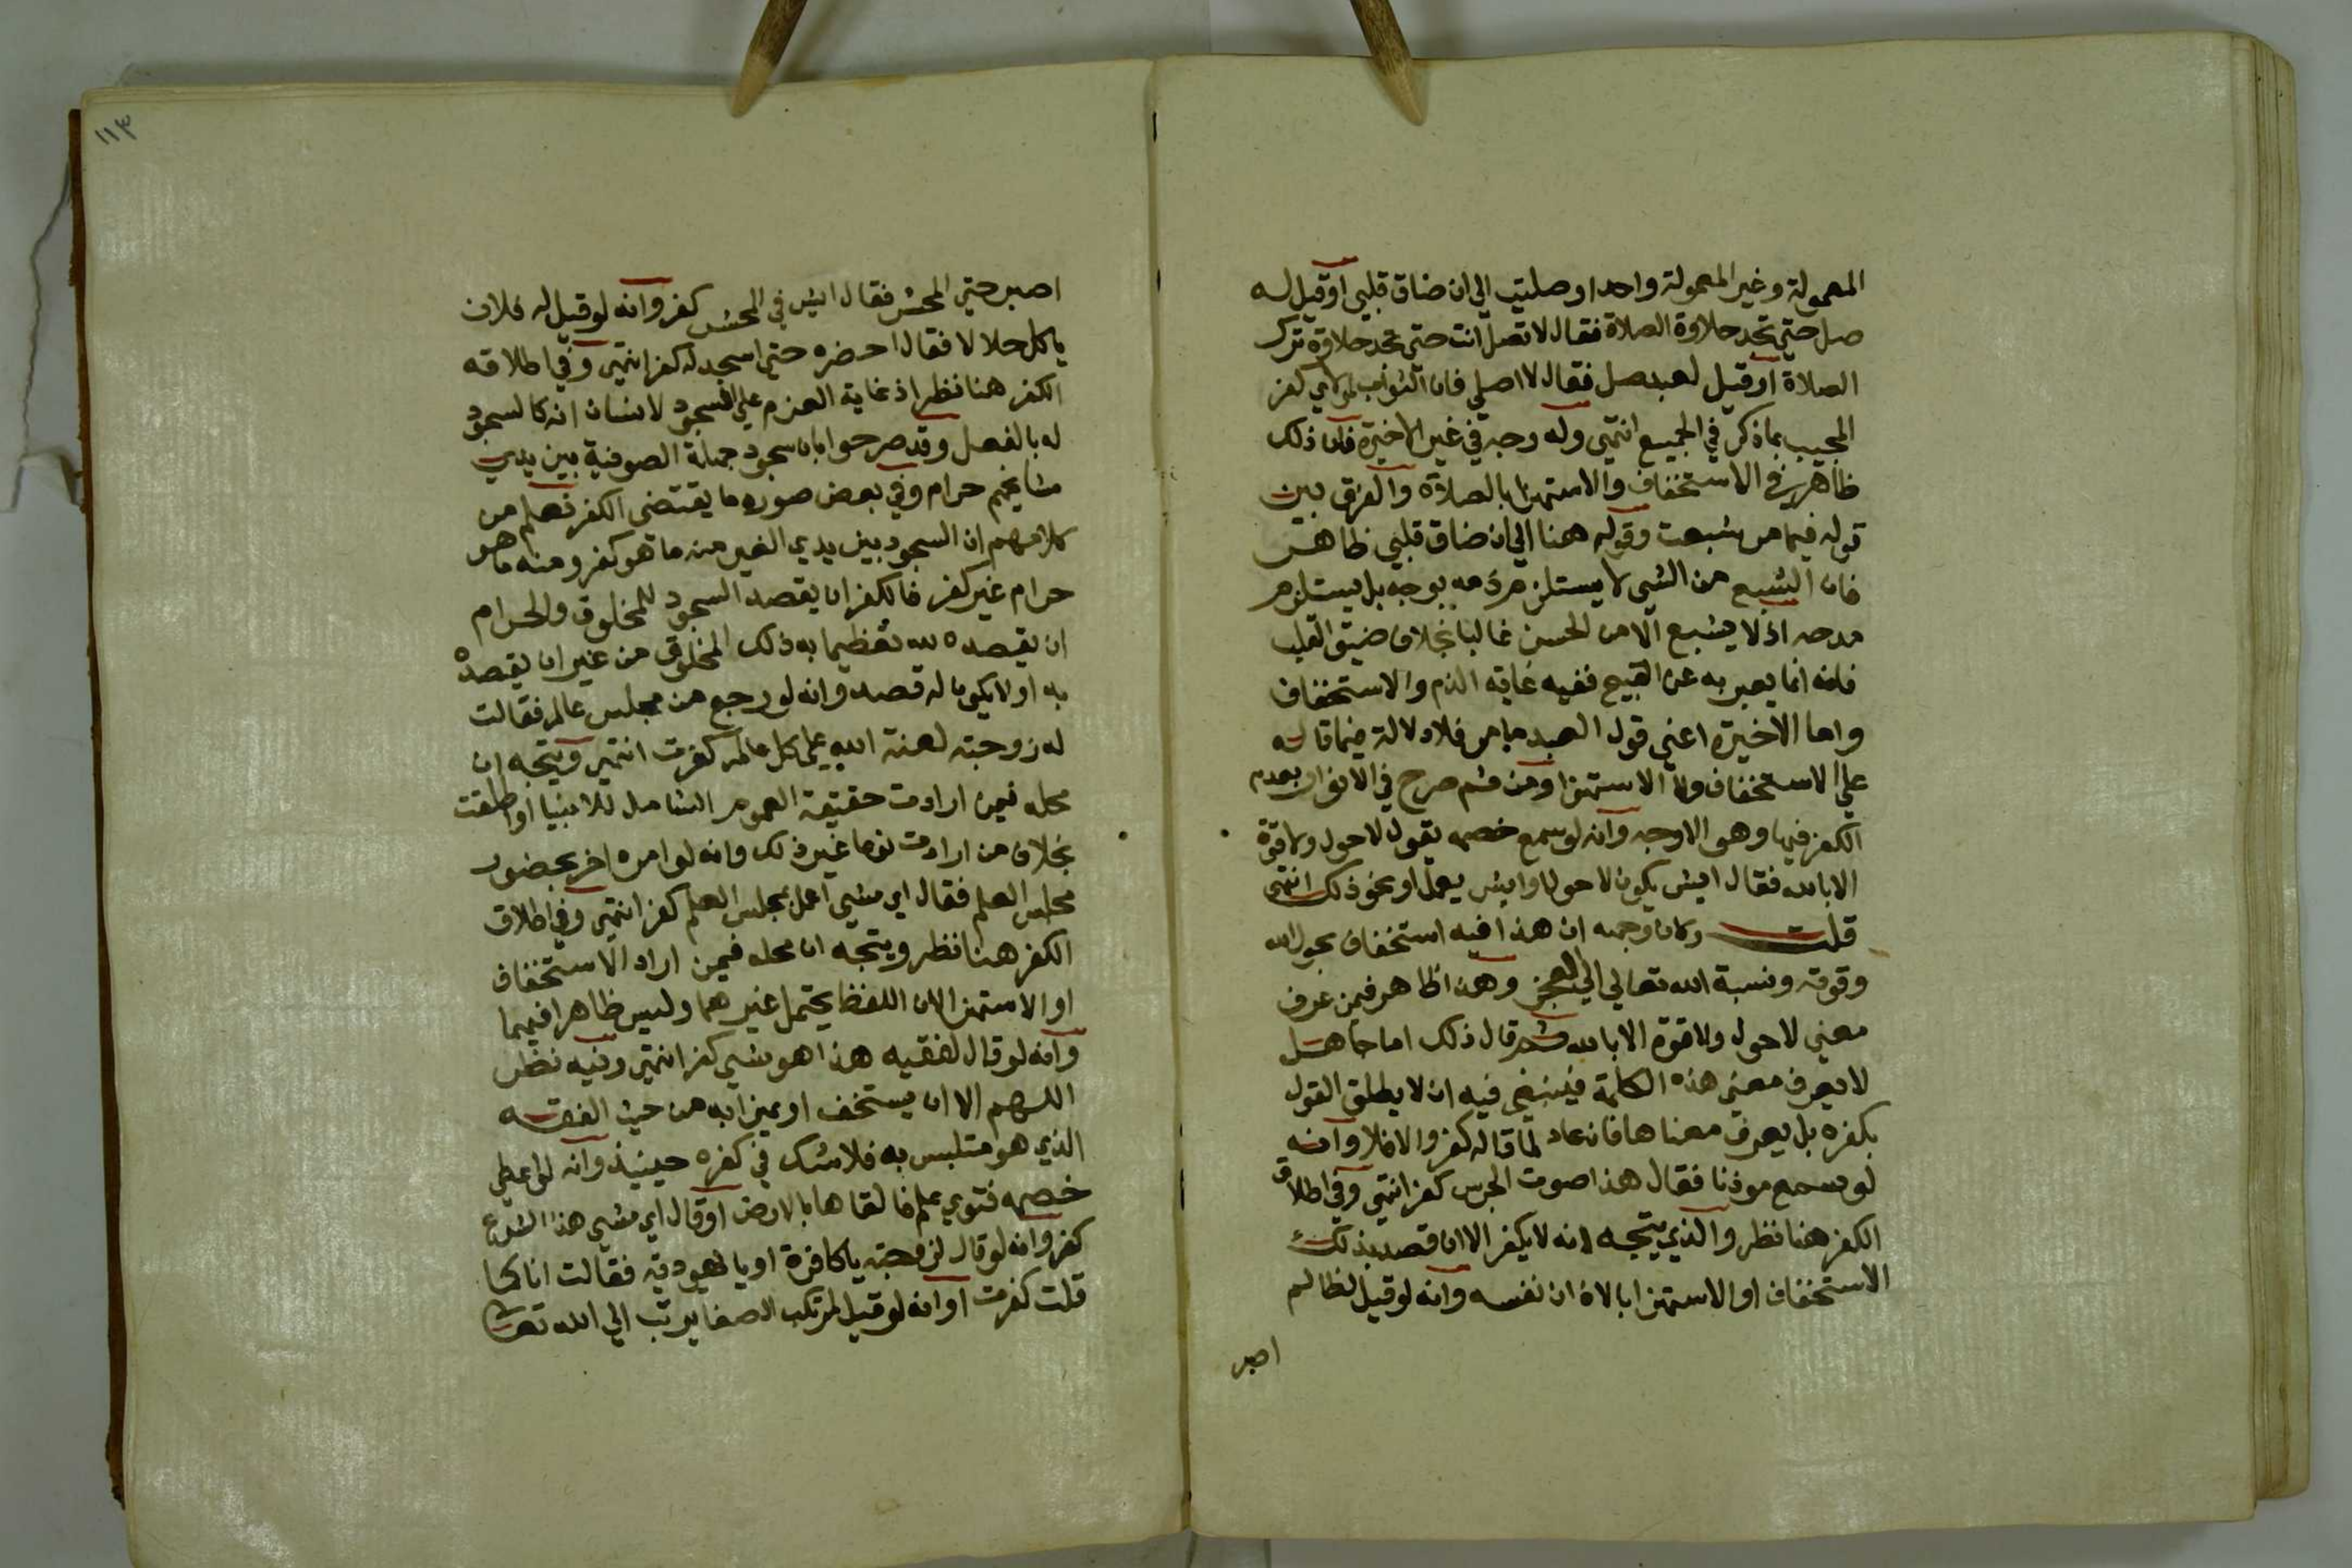 المعمولة وغير المعمولة واحد او صليت الي ان ضاق قلبي او قيل له
صل حتي تجد حلاوة الصلاة فقال لا تصل انت حتي تجد حلاوة ترك
الصلاة او قيل لعبد صل فقال لا اصلي فان الثواب لمولاي كفر
المجيب بما ذكر في الجميع انتهي وله وجه في غير الاخيرة فان ذلك
ظاهر في الاستخفاف والاستهزا بالصلاة والفرق بين
قوله فيما مر شبعت وقوله هنا الي ان ضاق قلبي ظاهر
فان الشبع من الشي لا يستلزم ذمه بوجه بل يستلزم
مدحه اذ لا يشبع الا من الحسن غالبا بخلاف ضيق القلب
فانه انما يعبر به عن القبيح ففيه غاية الذم والاستخفاف
واما الاخيرة اعني قول العبد ما مر فلا دلالة فيما قاله
علي الاستخفاف ولا الاستهزا ومن ثم صرح في الانوار بعدم
الكفر فيها وهو الاوجه وانه لو سمع خصمه يقول لا حول ولا قوة
الا بالله فقال ايش يكون لا حول او ايش يعمل او نحو ذلك انتهي
قلت وكان وجهه ان هذا فيه استخفاف بحول الله
وقوته ونسبة الله تعالي الي العجز وهذا ظاهر فيمن عرف
معني لا حول ولا قوة الا بالله ثم قال ذلك اما جاهل
لا يعرف معني هذه الكلمة فينبغي فيه ان لا يطلق القول
بكفره بل يعرف معناها فان عاد لما قاله كفر والا فلا وانه
لو سمع موذنا فقال هذا صوت الجرس كفر انتهي وفي اطلاق
الكفر هنا نظر والذي يتجه انه لا يكفر الا ان قصد بذلك
الاستخفاف او الاستهزا بالاذان نفسه وانه لو قيل لظالم
اصبر
١١٣
اصبر حتي المحشر فقال ايش في المحشر كفر وانه لو قيل له فلان
ياكل حلالا فقال احضره حتي اسجد له كفر انتهي وفي اطلاقه
الكفر هنا نظر اذ غاية العزم علي السجود لانسان انه كالسجود
له بالفعل وقد صرحوا بان سجود جملة الصوفية بين يدي
مشايخهم حرام وفي بعض صوره ما يقتضي الكفر فعلم من
كلامهم ان السجود بين يدي الغير منه ما هو كفر ومنه ما هو
حرام غير كفر فالكفر ان يقصد السجود للمخلوق والحرام
ان يقصده لله تعظيما به ذلك المخلوق من غير ان يقصده
به او لا يكون له قصد وانه لو رجع من مجلس عالم فقالت
له زوجته لعنة الله علي كل عالم كفرت انتهي ويتجه ان
محله فيمن ارادت حقيقة العموم الشامل للانبيا او اطلقت
بخلاف من ارادت نوعا غير ذلك وانه لو امره اخر بحضور
مجلس العلم فقال اي شي اعمل بمجلس العلم كفر انتهي وفي اطلاق
الكفر هنا نظر ويتجه ان محله فيمن اراد الاستخفاف
او الاستهزا لان اللفظ يحتمل غيرهما وليس ظاهرا فيهما
وانه لو قال لفقيه هذا هو شي كفر انتهي وفيه نظر
اللهم الا ان يستخف او يهزا به من حيث الفقه
الذي هو متلبس به فلا شك في كفره حينيذ وانه لو اعطي
خصمه فتوي علم فالقاها بالارض او قال اي شي هذا الشرع
كفر وانه لو قال لزوجته يا كافرة او يا يهودية فقالت انا كما
قلت كفرت او انه لو قيل لمرتكب الصغاير تب الي الله تعالي